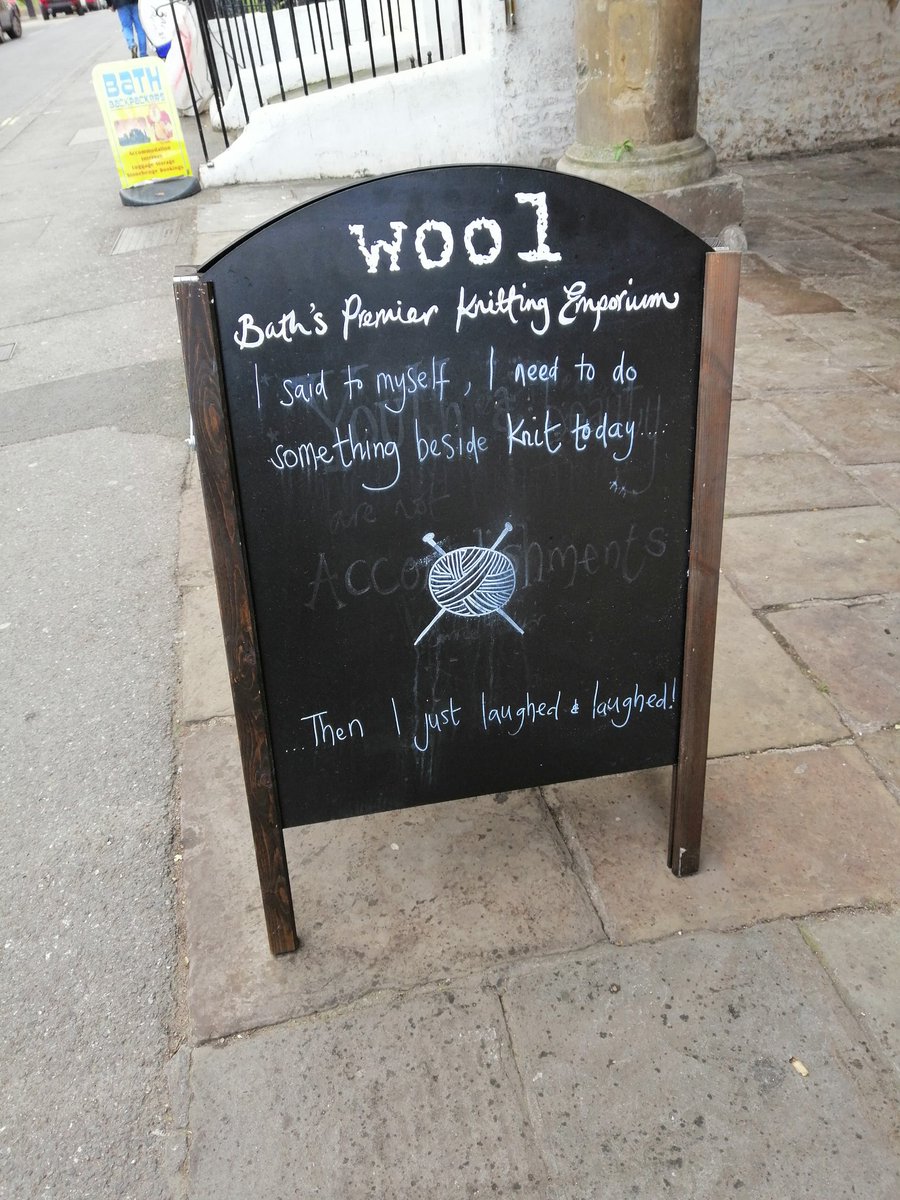 BATH
BACKPACKERS
Accommodation
internet
Luggage Storage
Stonehenge bookings
wool
Bath's Premier Knitting Emporium
I said to myself, I need to do
something beside Knit today....
Youth & beauty
are not
Accomplishments
...Then I just laughed & laughed!